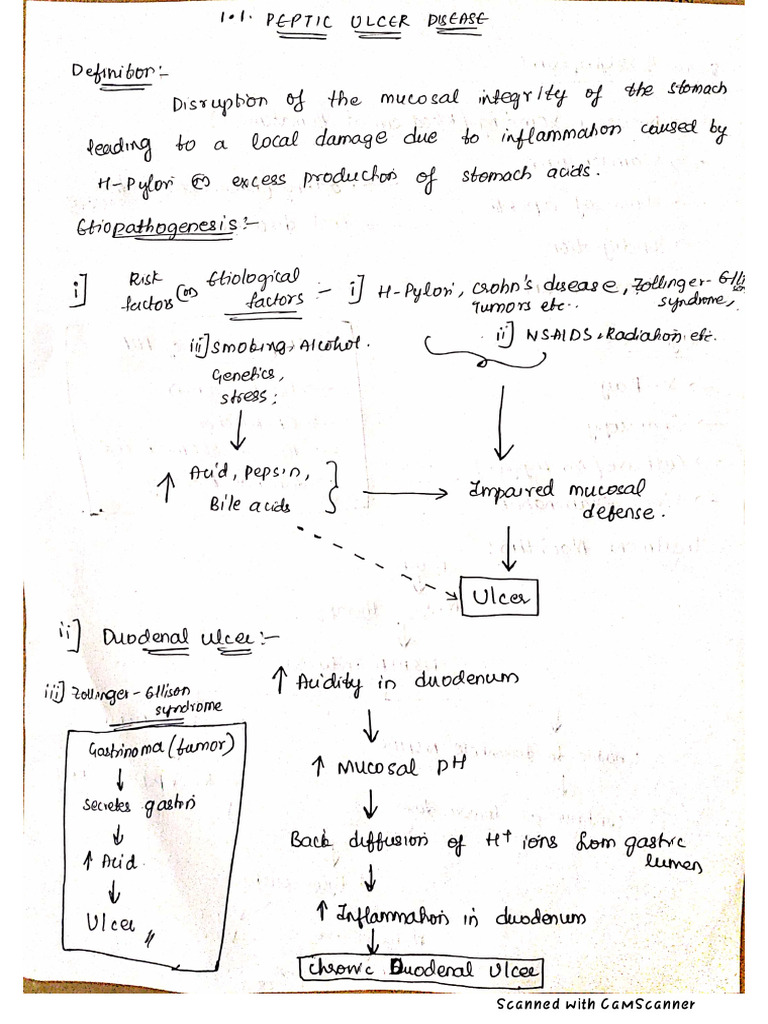 1.1. PEPTIC ULCER DISEASE
Definition:-
Disruption of the mucosal integrity of the stomach
leading to a local damage due to inflammation caused by
H-Pylori (or) excess production of stomach acids.
Etiopathogenesis:-
i] Risk factors (or) Etiological factors :- i] H-Pylori, Crohn's disease, Zollinger-Ellison syndrome,
Tumors etc..
ii] NSAIDS, Radiation etc.
iii] Smoking, Alcohol.
Genetics,
stress;
↑ Acid, Pepsin,
Bile acids
Impaired mucosal
defense.
Ulcer
ii] Duodenal ulcer:-
↑ Acidity in duodenum
↑ Mucosal pH
Back diffusion of H+ ions from gastric
lumen
↑ Inflammation in duodenum
Chronic Duodenal Ulcer
iii] Zollinger-Ellison
syndrome
Gastrinoma (tumor)
Secretes gastrin
↑ Acid
Ulcer
Scanned with CamScanner